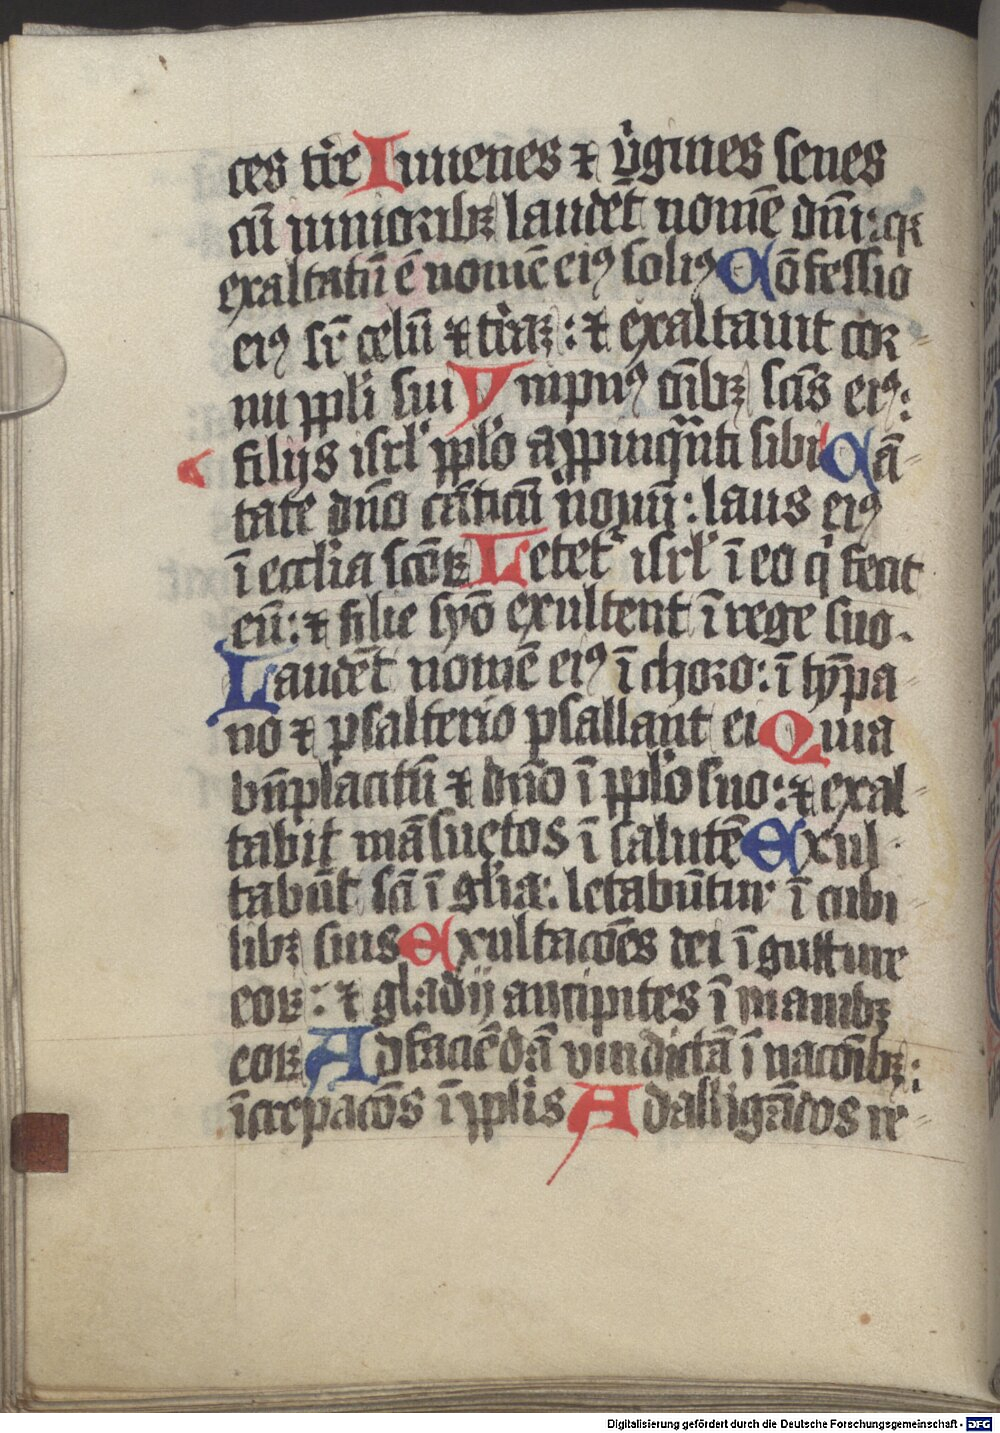 ces tr̄e Iuuenes ⁊ v̓gines senes
cū iuniorib⁊ laudēt nomē dn̄i: qꝛ
exaltatū ē nomē eiꝰ soliꝰ Cōfessio
eiꝰ sr̄ celū ⁊ tr̄aꝫ: ⁊ exaltauit cor
nu ppl̓i sui Ympnꝰ oīb⁊ scīs eiꝰ:
filijs isrl̓ ppl̓o appinqᷓnti sibi Cā
tate dn̄o cāticū nouū: laus eiꝰ
ī eccl̓ia scōꝝ Letet᷑ isrl̓ ī eo q̓ fecit
eū: ⁊ filie syō exultent ī rege suo.
Laudēt nomē eiꝰ ī choro: ī tȳpa
no ⁊ psalterio psallant ei Quia
bn̄placitū ē dn̄o ī ppl̓o suo: ⁊ exal
tabit māsuetos ī salutē Exul
tabūt scī ī gl̓ia: letabūtur ī cubi
lib⁊ suis Exultacōēs dei ī gutture
eoꝝ: ⁊ gladij ancipites ī manib⁊
eoꝝ Ad faciēdā vindictā ī nacōīb⁊:
īcrepacōēs ī ppl̓is Ad alligādos re
Digitalisierung gefördert durch die Deutsche Forschungsgemeinschaft - DFG